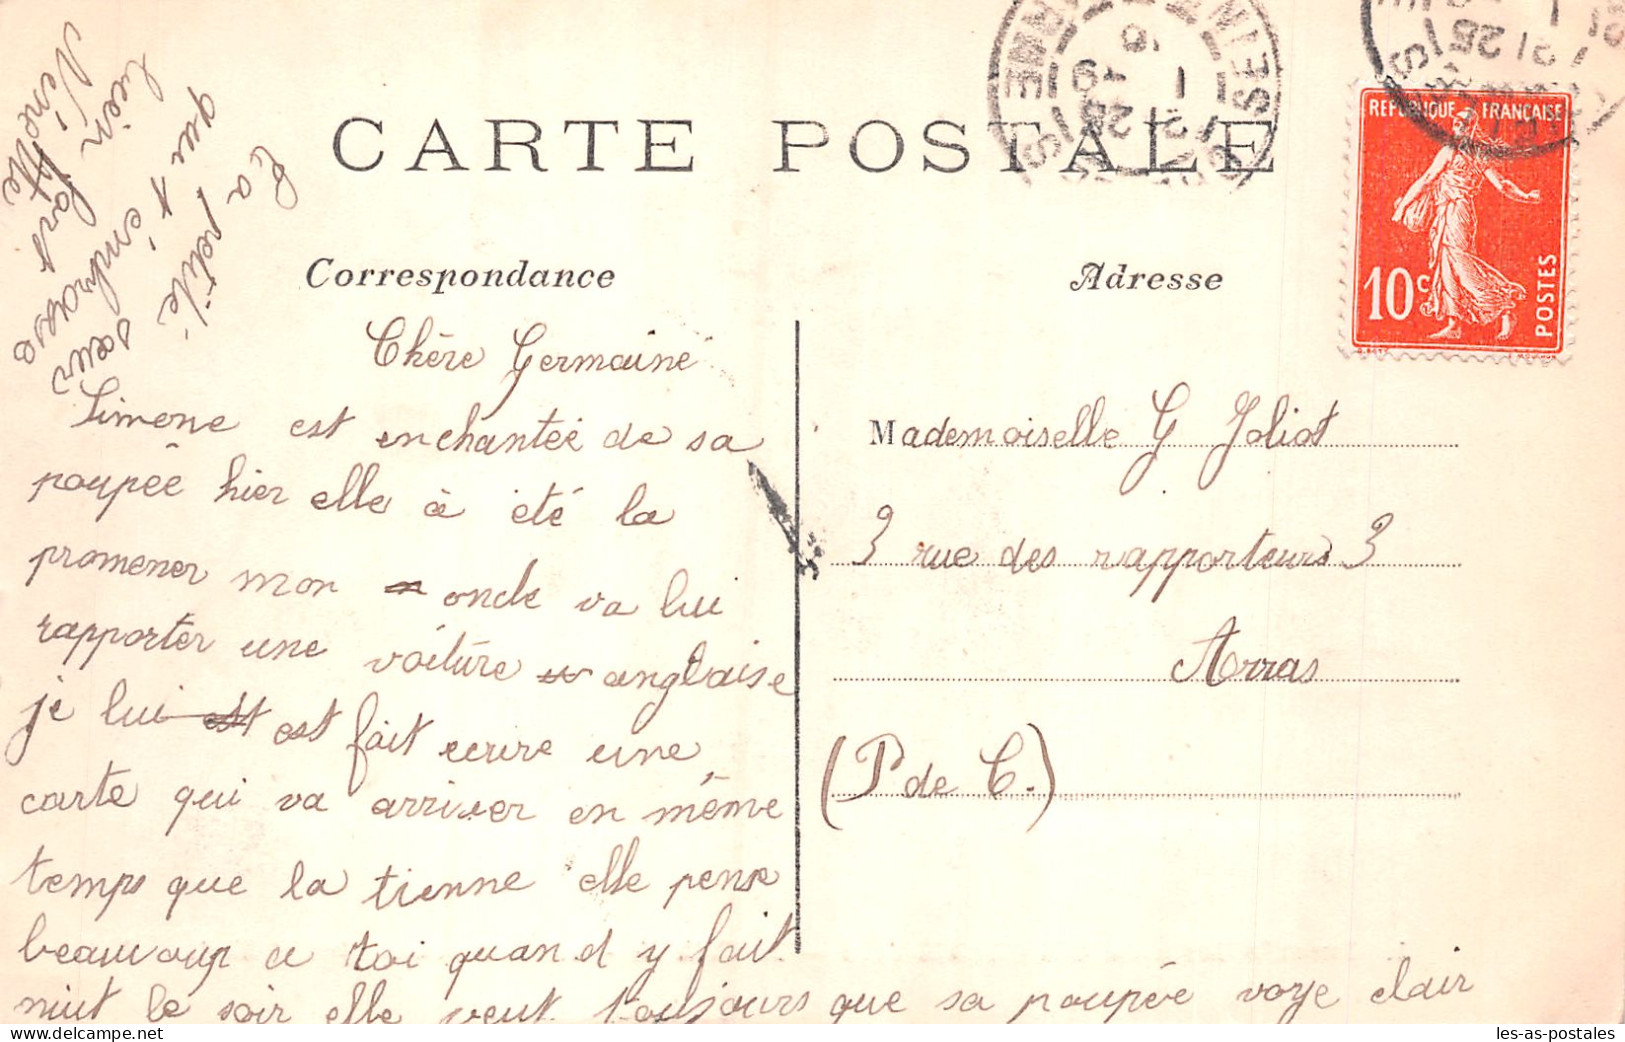 CARTE POSTALE
REPUBLIQUE FRANÇAISE
10c
POSTES
Correspondance
Adresse
Chère Germaine
Simone est enchantée de sa
poupée hier elle à été la
promener mon oncle va lui
rapporter une voiture anglaise
je lui est est fait ecrire une
carte qui va arriver en même
temps que la tienne elle pense
beaucoup a toi quand y fait
nuit le soir elle veut toujours que sa poupée voye clair
Ta petite
sœur
qui t'embrasse
bien fort
Ninette
Mademoiselle G Joliot
3 rue des rapporteurs 3
Arras
(P de C.)
les-as-postales